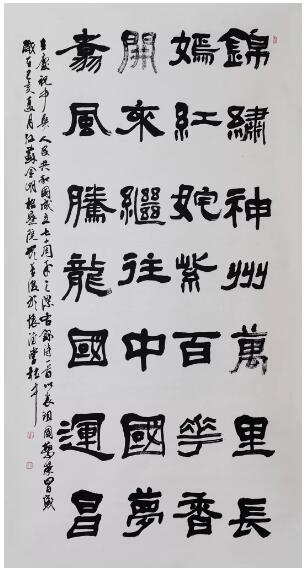 錦繡神州萬里長
嫣紅姹紫百花香
開來繼往中國夢
翥風騰龍國運昌
慶祝中華人民共和國成立七十周年之際 詩一首以表祖國繁榮昌盛
歲在己亥夏月江蘇金湖